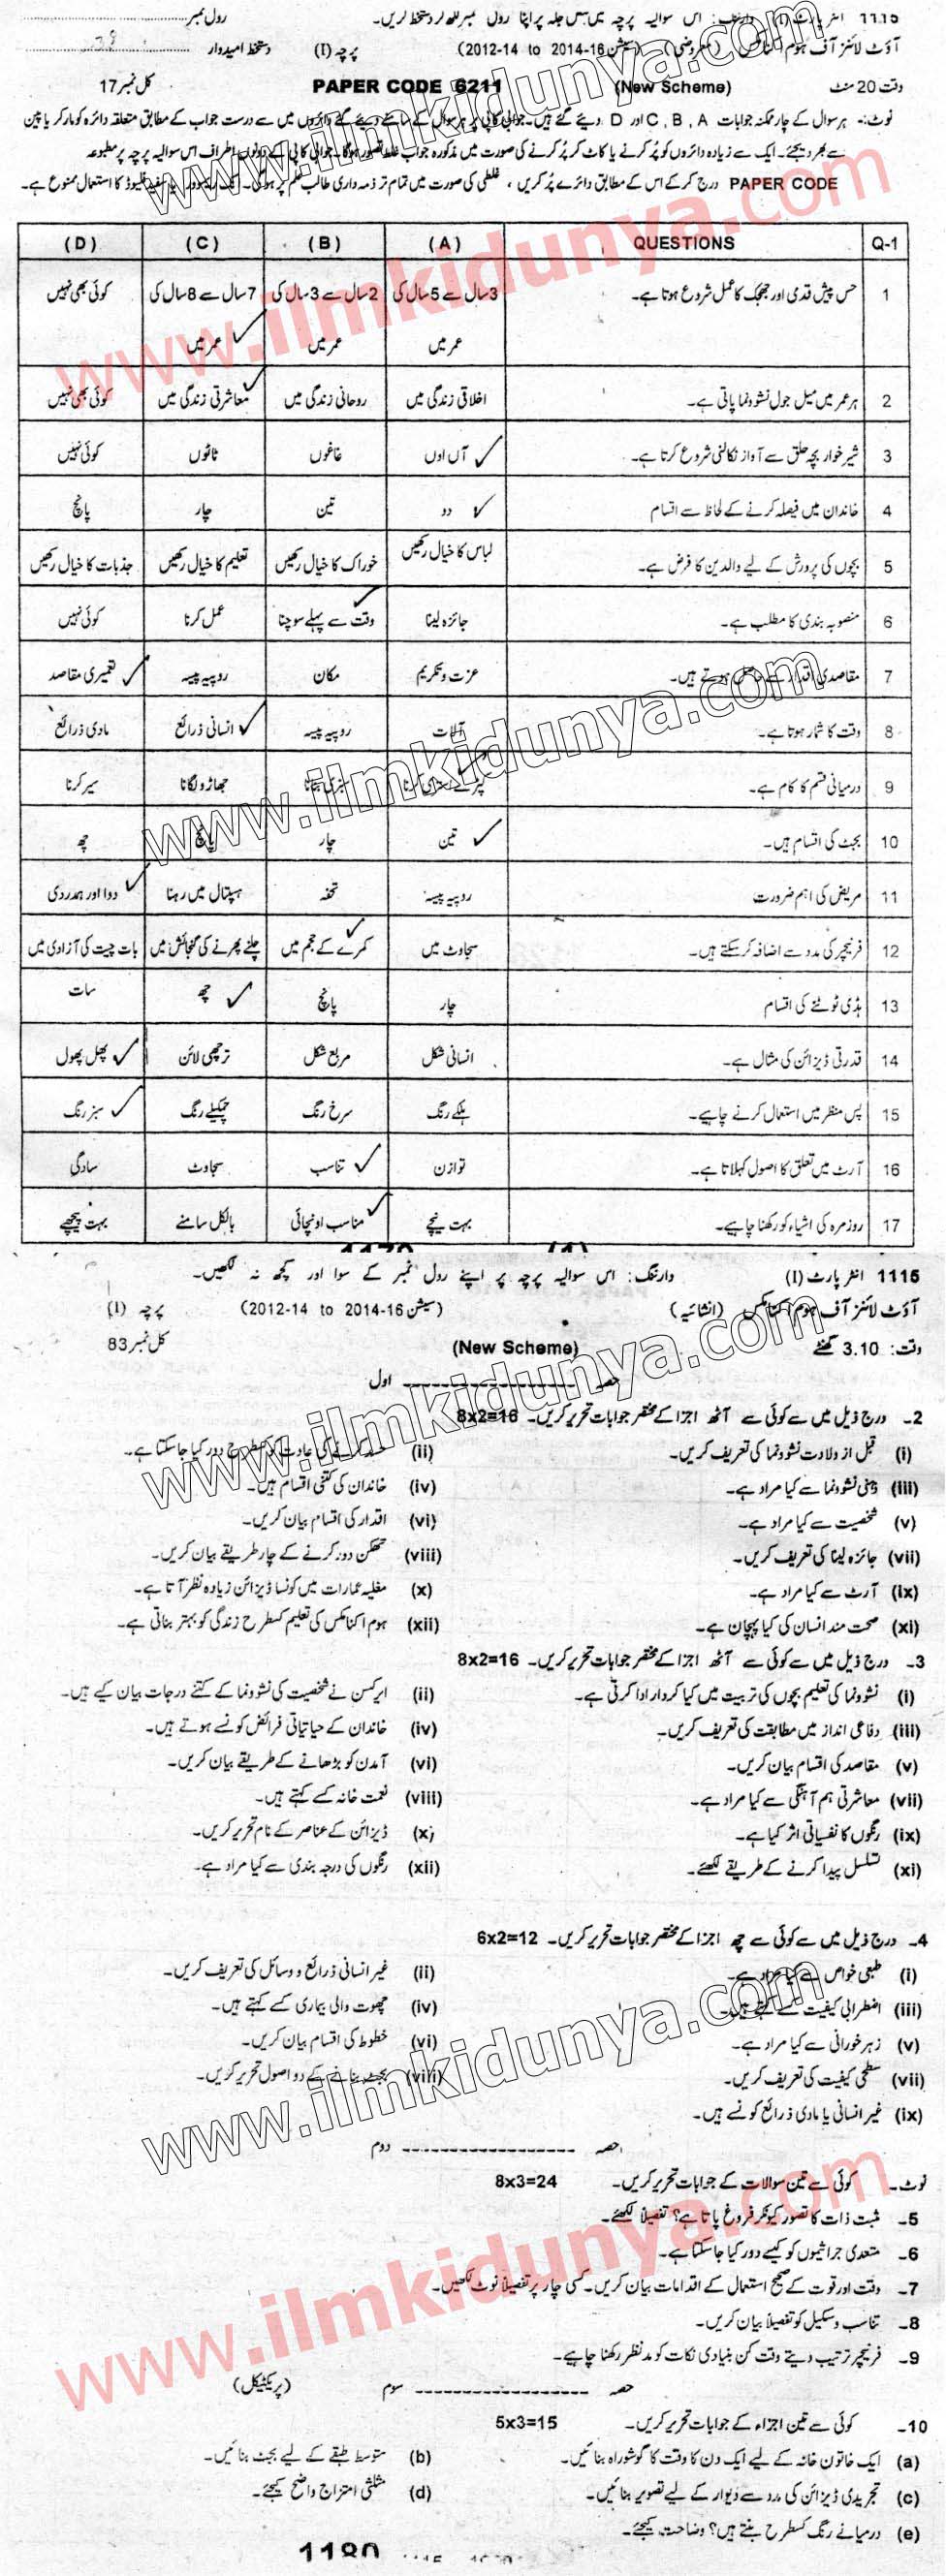 1115 انٹر پارٹ (I) وارننگ: اس سوالیہ پرچہ میں اپنا رول نمبر لکھ کر دستخط کریں۔ رول نمبر
آؤٹ لائنز آف ہوم اکنامکس (معروضی) (سیشن 2012-14 to 2014-16) پرچہ (I) دستخط امیدوار
وقت 20 منٹ (New Scheme) PAPER CODE 6211 کل نمبر 17
نوٹ:- ہر سوال کے چار ممکنہ جوابات A, B, C اور D دیئے گئے ہیں۔ جوابی کاپی پر ہر سوال کے سامنے دیئے گئے دائروں میں سے درست جواب کے مطابق متعلقہ دائرہ کو مارکر یا پین
سے بھر دیجئے۔ ایک سے زیادہ دائروں کو پُر کرنے یا کاٹ کر پُر کرنے کی صورت میں مذکورہ جواب غلط تصور ہوگا۔ جوابی کاپی کے دونوں اطراف اس سوالیہ پرچہ پر مطبوعہ
PAPER CODE درج کر کے اس کے مطابق دائرے پُر کریں، غلطی کی صورت میں تمام تر ذمہ داری طالب علم پر ہوگی۔ انک ریموور یا سفید فلیوڈ کا استعمال ممنوع ہے۔
Q-1 QUESTIONS (A) (B) (C) (D)
1 حس پیش قدمی اور جھجک کا عمل شروع ہوتا ہے۔ 3 سال سے 5 سال کی عمر میں 2 سال سے 3 سال کی عمر میں 7 سال سے 8 سال کی عمر میں کوئی بھی نہیں
2 ہر عمر میں میل جول نشوونما پاتی ہے۔ اخلاقی زندگی میں روحانی زندگی میں معاشرتی زندگی میں کوئی بھی نہیں
3 شیر خوار بچہ حلق سے آواز نکالنی شروع کرتا ہے۔ آں اوں غاغوں ٹاٹوں کوئی نہیں
4 خاندان میں فیصلہ کرنے کے لحاظ سے اقسام دو تین چار پانچ
5 بچوں کی پرورش کے لیے والدین کا فرض ہے۔ لباس کا خیال رکھیں خوراک کا خیال رکھیں تعلیم کا خیال رکھیں جذبات کا خیال رکھیں
6 منصوبہ بندی کا مطلب ہے۔ جائزہ لینا وقت سے پہلے سوچنا عمل کرنا کوئی نہیں
7 مقاصدی اقدار سے حاصل ہوتے ہیں۔ عزت و تکریم مکان روپیہ پیسہ تعمیری مقاصد
8 وقت کا شمار ہوتا ہے۔ آلات روپیہ پیسہ انسانی ذرائع مادی ذرائع
9 درمیانی قسم کا کام ہے۔ کپڑے استری کرنا سبزی بنانا جھاڑو لگانا سیر کرنا
10 بجٹ کی اقسام ہیں۔ تین چار پانچ چھ
11 مریض کی اہم ضرورت روپیہ پیسہ تحفہ ہسپتال میں رہنا دوا اور ہمدردی
12 فرنیچر کی مدد سے اضافہ کر سکتے ہیں۔ سجاوٹ میں کمرے کے حجم میں چلنے پھرنے کی گنجائش میں بات چیت کی آزادی میں
13 ہڈی ٹوٹنے کی اقسام چار پانچ چھ سات
14 قدرتی ڈیزائن کی مثال ہے۔ انسانی شکل مربع شکل ترچھی لائن پھل پھول
15 پس منظر میں استعمال کرنے چاہیے۔ ہلکے رنگ سرخ رنگ چمکیلے رنگ سبز رنگ
16 آرٹ میں تعلق کا اصول کہلاتا ہے۔ توازن تناسب سجاوٹ سادگی
17 روزمرہ کی اشیاء کو رکھنا چاہیے۔ بہت نیچے مناسب اونچائی بالکل سامنے بہت پیچھے
1115 انٹر پارٹ (I) وارننگ: اس سوالیہ پرچہ پر اپنے رول نمبر کے سوا اور کچھ نہ لکھیں۔
آؤٹ لائنز آف ہوم اکنامکس (انشائیہ) (سیشن 2012-14 to 2014-16) پرچہ (I)
وقت: 3.10 گھنٹے (New Scheme) کل نمبر 83
حصہ ------------------ اول
2۔ درج ذیل میں سے کوئی سے آٹھ اجزا کے مختصر جوابات تحریر کریں۔ 8x2=16
(i) قبل از ولادت نشوونما کی تعریف کریں۔ (ii) حسد کرنے کی عادت کو کسطرح دور کیا جا سکتا ہے۔
(iii) ذہنی نشوونما سے کیا مراد ہے۔ (iv) خاندان کی کتنی اقسام ہیں۔
(v) شخصیت سے کیا مراد ہے۔ (vi) اقدار کی اقسام بیان کریں۔
(vii) جائزہ لینا کی تعریف کریں۔ (viii) تھکن دور کرنے کے چار طریقے بیان کریں۔
(ix) آرٹ سے کیا مراد ہے۔ (x) مغلیہ عمارات میں کونسا ڈیزائن زیادہ نظر آتا ہے۔
(xi) صحت مند انسان کی کیا پہچان ہے۔ (xii) ہوم اکنامکس کی تعلیم کسطرح زندگی کو بہتر بناتی ہے۔
3۔ درج ذیل میں سے کوئی سے آٹھ اجزا کے مختصر جوابات تحریر کریں۔ 8x2=16
(i) نشوونما کی تعلیم بچوں کی تربیت میں کیا کردار ادا کرتی ہے۔ (ii) ایرکسن نے شخصیت کی نشوونما کے کتنے درجات بیان کیے ہیں۔
(iii) دفاعی انداز میں مطابقت کی تعریف کریں۔ (iv) خاندان کے حیاتیاتی فرائض کونسے ہوتے ہیں۔
(v) مقاصد کی اقسام بیان کریں۔ (vi) آمدن کو بڑھانے کے طریقے بیان کریں۔
(vii) معاشرتی ہم آہنگی سے کیا مراد ہے۔ (viii) نعمت خانہ کسے کہتے ہیں۔
(ix) رنگوں کا نفسیاتی اثر کیا ہے۔ (x) ڈیزائن کے عناصر کے نام تحریر کریں۔
(xi) تسلسل پیدا کرنے کے طریقے لکھئے۔ (xii) رنگوں کی درجہ بندی سے کیا مراد ہے۔
4۔ درج ذیل میں سے کوئی سے چھ اجزا کے مختصر جوابات تحریر کریں۔ 6x2=12
(i) طبعی خواص سے کیا مراد ہے۔ (ii) غیر انسانی ذرائع و وسائل کی تعریف کریں۔
(iii) اضطرابی کیفیت کسے کہتے ہیں۔ (iv) چھوت والی بیماری کسے کہتے ہیں۔
(v) زہر خورانی سے کیا مراد ہے۔ (vi) خطوط کی اقسام بیان کریں۔
(vii) سطحی کیفیت کی تعریف کریں۔ (viii) بجٹ بنانے کے دو اصول تحریر کریں۔
(ix) غیر انسانی یا مادی ذرائع کونسے ہیں۔
حصہ ------------------ دوم
نوٹ۔ کوئی سے تین سوالات کے جوابات تحریر کریں۔ 8x3=24
5۔ مثبت ذات کا تصور کیونکر فروغ پاتا ہے؟ تفصیلاً لکھئے۔
6۔ متعدی جراثیموں کو کیسے دور کیا جا سکتا ہے۔
7۔ وقت اور قوت کے صحیح استعمال کے اقدامات بیان کریں۔ کسی چار پر تفصیلاً نوٹ لکھیں۔
8۔ تناسب و سکیل کو تفصیلاً بیان کریں۔
9۔ فرنیچر ترتیب دیتے وقت کن بنیادی نکات کو مدنظر رکھنا چاہیے۔
حصہ ------------------ سوم (پریکٹیکل)
10۔ کوئی سے تین اجزاء کے جوابات تحریر کریں۔ 5x3=15
(a) ایک خاتون خانہ کے لیے ایک دن کا وقت کا گوشوارہ بنائیں۔ (b) متوسط طبقے کے لیے بجٹ بنائیں۔
(c) تجریدی ڈیزائن کی مدد سے دیوار کے لیے تصویر بنائیں۔ (d) مثلثی امتزاج واضح کیجئے۔
(e) درمیانے رنگ کسطرح بنتے ہیں؟ وضاحت کیجئے۔
1180
www.ilmkidunya.com